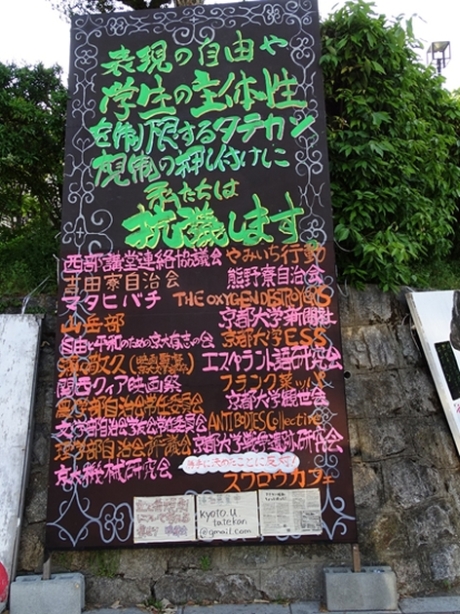 表現の自由や
学生の主体性
を制限するタテカン
規制の押し付けに
私たちは
抗議します
西部講堂連絡協議会 やみいち行動
吉田寮自治会 熊野寮自治会
マタヒバチ THE OXYGEN DESTROYERS
山岳部 京都大学新聞社
自由と平和のための京大有志の会 京都大学ESS
エスペラント語研究会
関西クィア映画祭 フランク菜ッパ
農学部自治会学生委員会 京都大学観世会
文学部自治会学友会学生委員会 ANTIBODIES Collective
理学部自治会評議会
京大機械研究会 勝手に決めたことに反対!
スワロウカフェ
kyoto.u
tatekan
@gmail.com